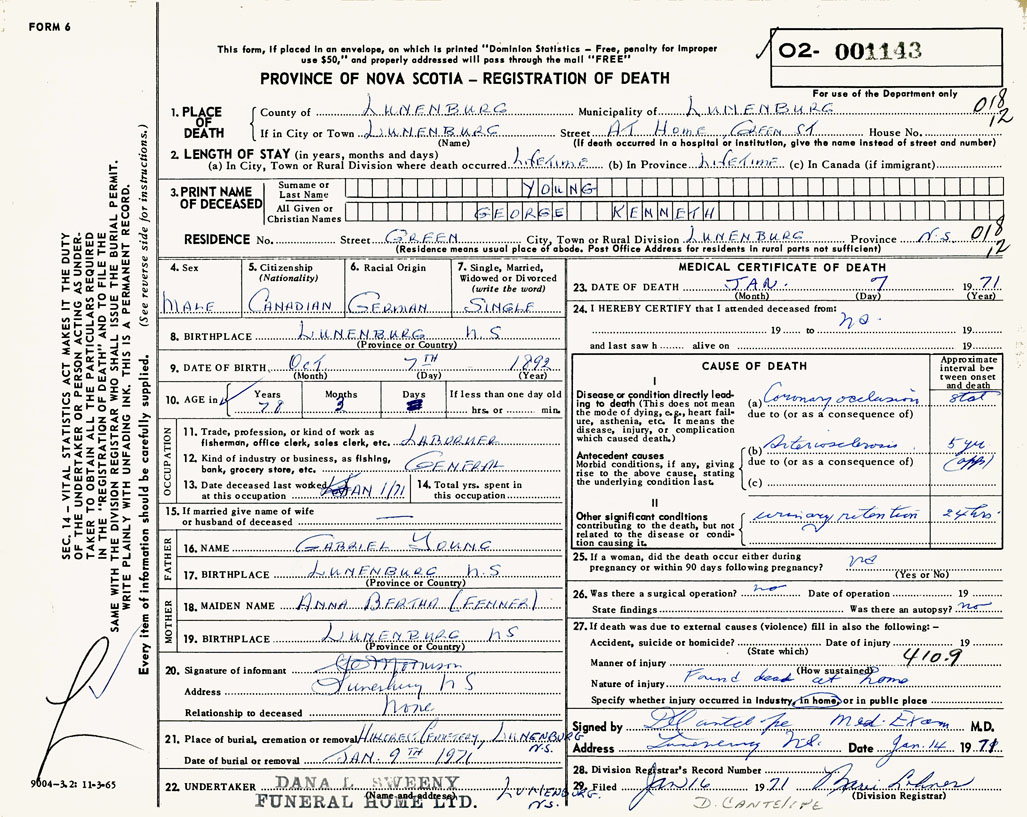 FORM 6
This form, if placed in an envelope, on which is printed "Dominion Statistics – Free, penalty for improper
use $50," and properly addressed will pass through the mail "FREE"
PROVINCE OF NOVA SCOTIA – REGISTRATION OF DEATH
O2- 001143
For use of the Department only
018
12
1. PLACE OF DEATH
County of LUNENBURG Municipality of LUNENBURG
If in City or Town LUNENBURG Street AT HOME, GREEN ST House No.
(Name) (If death occurred in a hospital or institution, give the name instead of street and number)
2. LENGTH OF STAY (in years, months and days)
(a) In City, Town or Rural Division where death occurred LIFETIME (b) In Province LIFETIME (c) In Canada (if immigrant)
3. PRINT NAME OF DECEASED
Surname or Last Name YOUNG
All Given or Christian Names GEORGE KENNETH
RESIDENCE No. Street GREEN City, Town or Rural Division LUNENBURG Province N.S. 018
12
(Residence means usual place of abode. Post Office Address for residents in rural parts not sufficient)
4. Sex
MALE
5. Citizenship (Nationality)
CANADIAN
6. Racial Origin
GERMAN
7. Single, Married, Widowed or Divorced (write the word)
SINGLE
8. BIRTHPLACE LUNENBURG N.S
(Province or Country)
9. DATE OF BIRTH Oct 7TH 1892
(Month) (Day) (Year)
10. AGE in Years Months Days If less than one day old
78 3 hrs. or min.
OCCUPATION
11. Trade, profession, or kind of work as
fisherman, office clerk, sales clerk, etc. LABORMER
12. Kind of industry or business, as fishing,
bank, grocery store, etc. GENERAL
13. Date deceased last worked
at this occupation JAN 1/71
14. Total yrs. spent in
this occupation
15. If married give name of wife
or husband of deceased —
FATHER
16. NAME GABRIEL YOUNG
17. BIRTHPLACE LUNENBURG N.S
(Province or Country)
MOTHER
18. MAIDEN NAME ANNA BERTHA (FENNER)
19. BIRTHPLACE LUNENBURG NS
(Province or Country)
20. Signature of informant Morrison
Address Lunenburg N S
Relationship to deceased None
21. Place of burial, cremation or removal HILLCREST CEMETERY, LUNENBURG
N.S.
Date of burial or removal JAN. 9TH 1971
22. UNDERTAKER DANA L. SWEENY
(Name and address)
FUNERAL HOME LTD. LUNENBURG.
N.S.
MEDICAL CERTIFICATE OF DEATH
23. DATE OF DEATH JAN. 7 1971
(Month) (Day) (Year)
24. I HEREBY CERTIFY that I attended deceased from: no
19 to 19
and last saw h alive on 19
CAUSE OF DEATH
Approximate interval between onset and death
I
Disease or condition directly leading to death (This does not mean
the mode of dying, e.g., heart failure, asthenia, etc. It means the
disease, injury, or complication
which caused death.)
(a) Coronary occlusion stat
due to (or as a consequence of)
Antecedent causes
Morbid conditions, if any, giving
rise to the above cause, stating
the underlying condition last.
(b) Arteriosclerosis 5 yrs
(app)
due to (or as a consequence of)
(c)
II
Other significant conditions
contributing to the death, but not
related to the disease or condition causing it.
urinary retention 24 hrs.
25. If a woman, did the death occur either during
pregnancy or within 90 days following pregnancy? no
(Yes or No)
26. Was there a surgical operation? no Date of operation 19
State findings Was there an autopsy? no
27. If death was due to external causes (violence) fill in also the following: –
Accident, suicide or homicide? Date of injury 19
(State which)
Manner of injury 410.9
(How sustained)
Nature of injury Found dead at home
Specify whether injury occurred in Industry, in home, or in public place
Signed by D Cantelope Med. Exam M.D.
Address Lunenburg N.S. Date Jan. 14 1971
28. Division Registrar's Record Number
29. Filed Jan 16 1971
(Division Registrar)
D. CANTELIPE
SEC. 14 – VITAL STATISTICS ACT MAKES IT THE DUTY
OF THE UNDERTAKER OR PERSON ACTING AS UNDER-
TAKER TO OBTAIN ALL THE PARTICULARS REQUIRED
IN THE "REGISTRATION OF DEATH" AND TO FILE THE
SAME WITH THE DIVISION REGISTRAR WHO SHALL ISSUE THE BURIAL PERMIT.
WRITE PLAINLY WITH UNFADING INK. THIS IS A PERMANENT RECORD.
Every item of information should be carefully supplied. (See reverse side for instructions.)
9004-3.2: 11-3-65